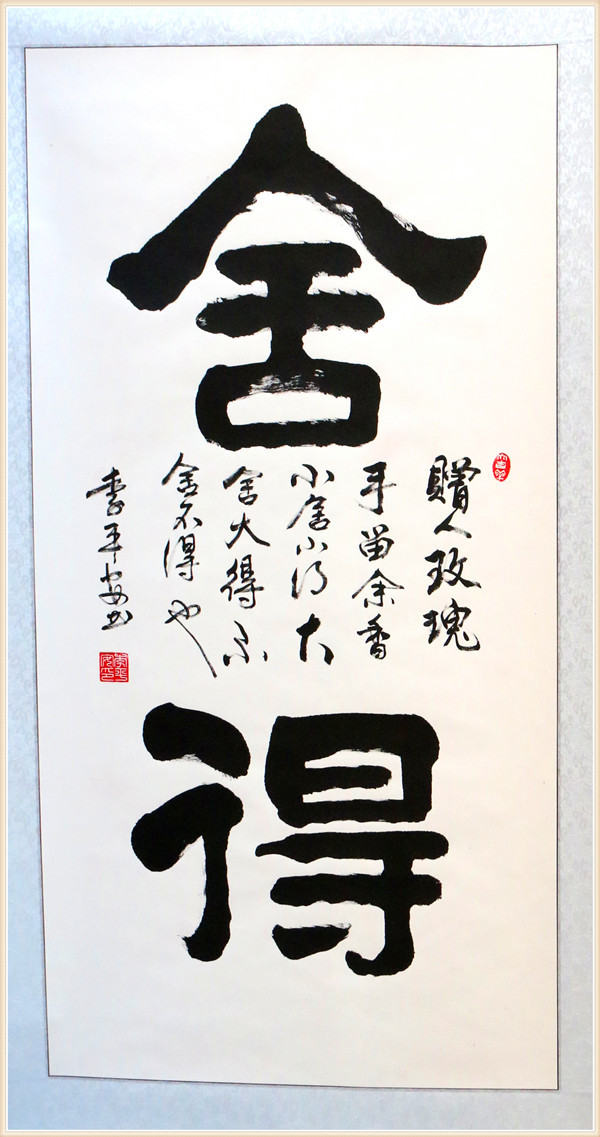 舍
得
贈人玫瑰
手留余香
小舍小得大
舍大得不
舍不得也
李平安书